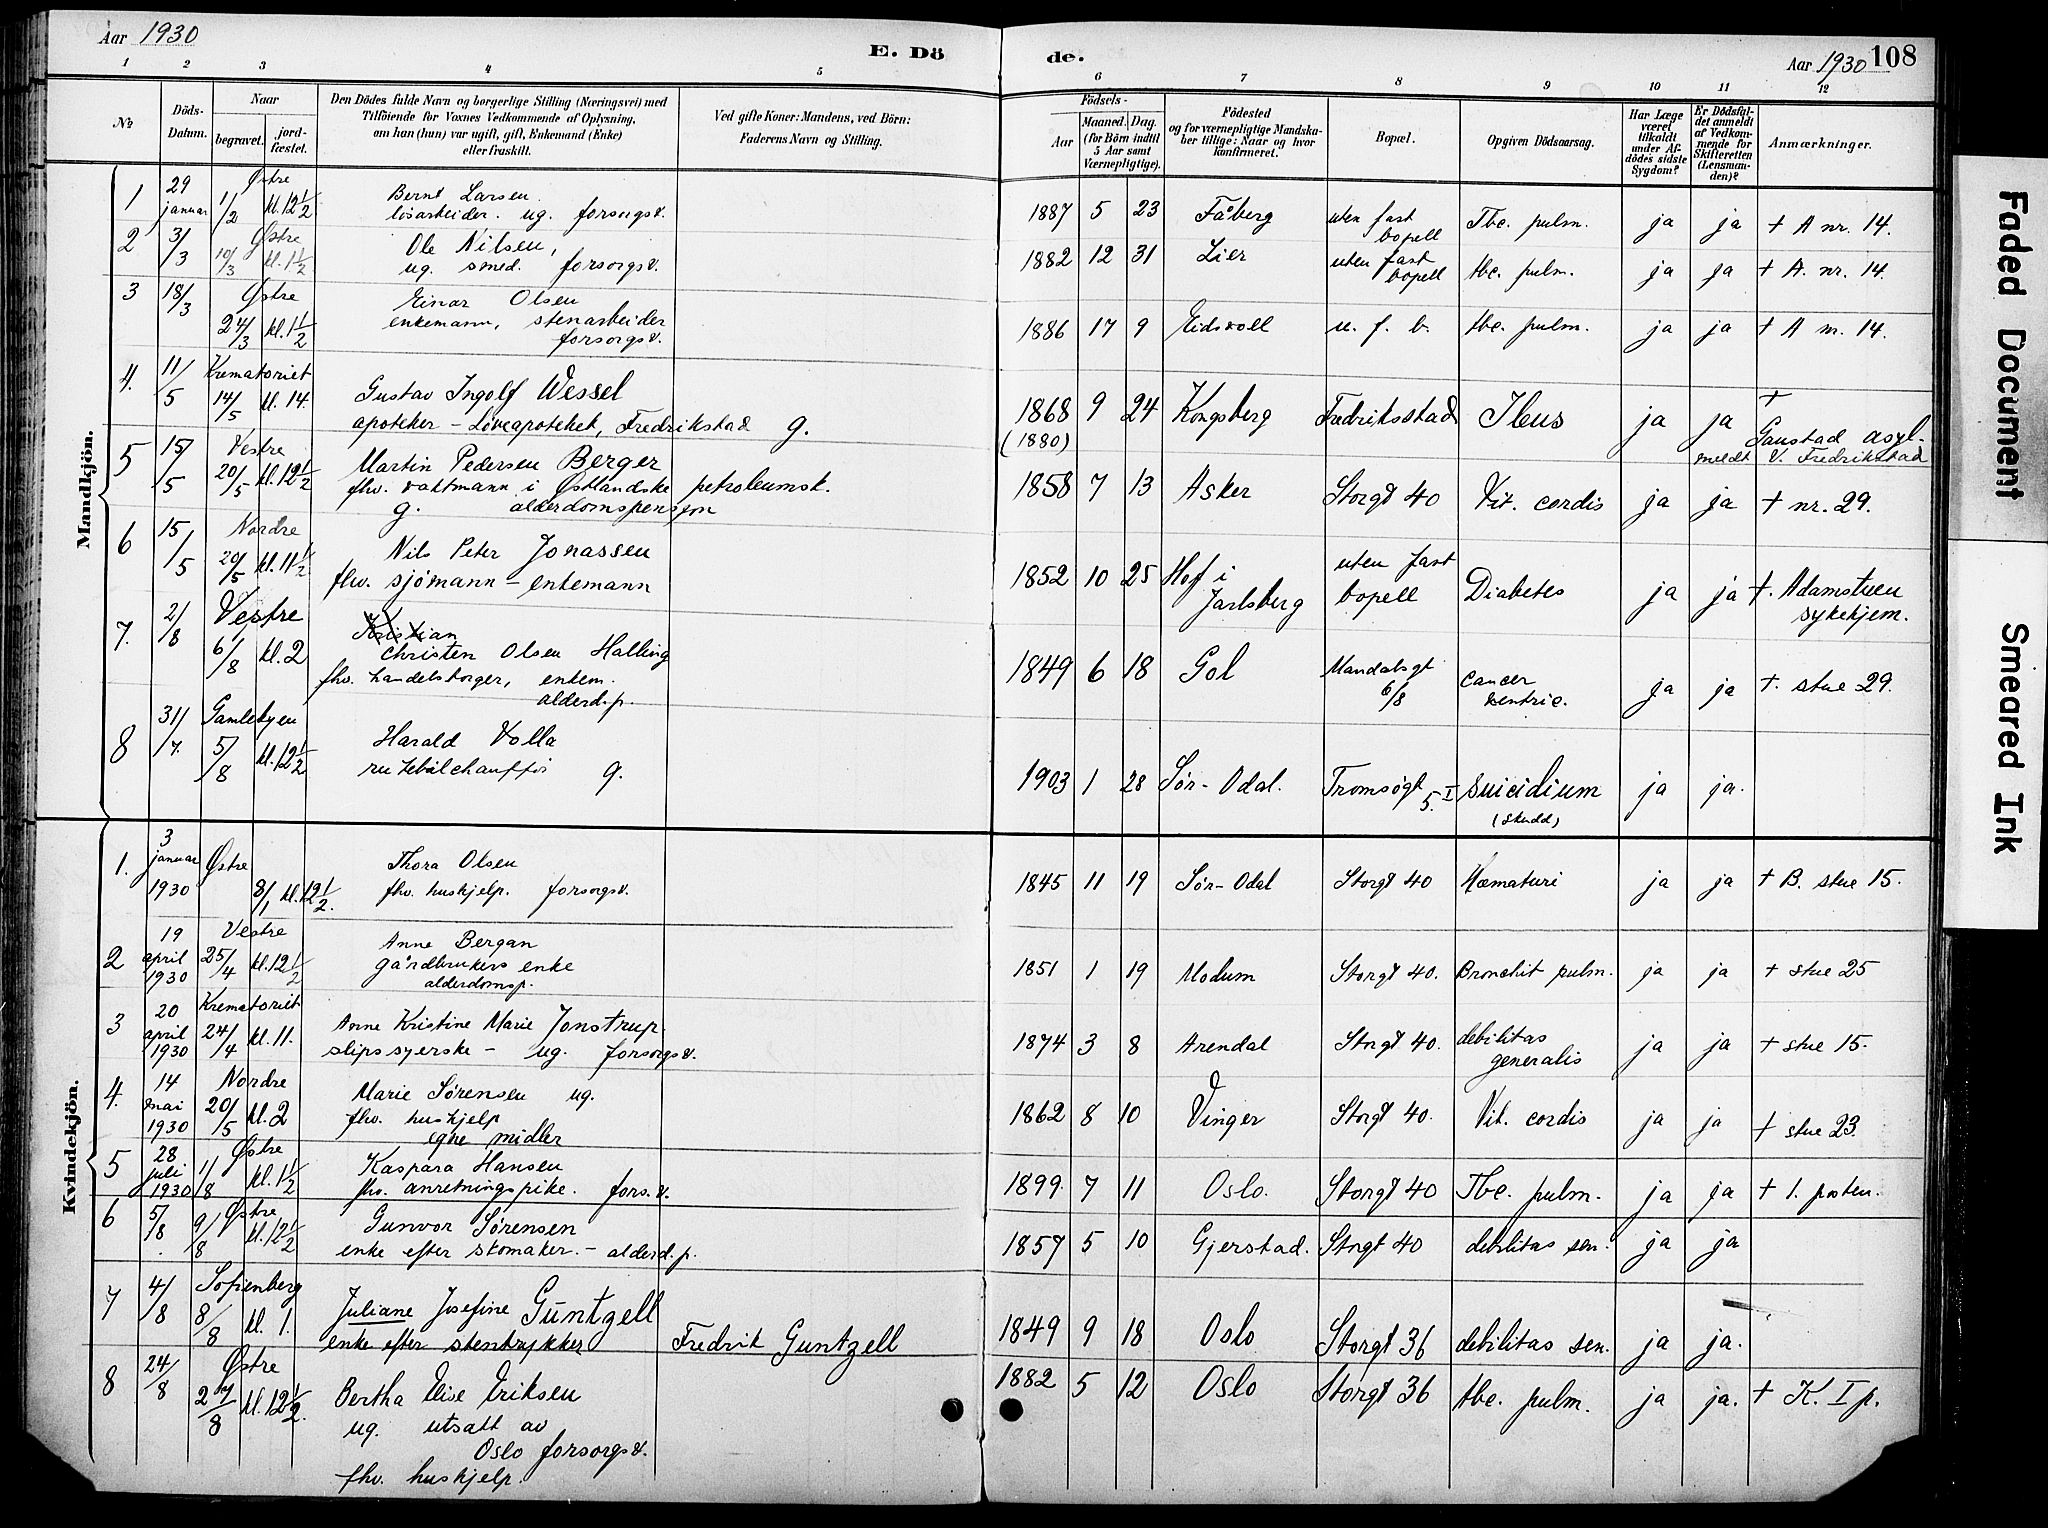 Aar 1930
E. Dö
de.
Aar 1930
108
1 2 3 4 5 6 7 8 9 10 11 12
№
Döds-
Datum.
Naar
begravet.
jord-
fæstet.
Den Dödes fulde Navn og borgerlige Stilling (Næringsvei) med
Tilföiende for Voxnes Vedkommende af Oplysning,
om han (hun) var ugift, gift, Enkemand (Enke)
eller fraskilt.
Ved gifte Koner: Mandens, ved Börn:
Faderens Navn og Stilling.
Födsels-
Aar
Maaned. Dag.
(for Börn indtil
5 Aar samt
Værnepligtige).
Födested
og for værnepligtige Mandska-
ber tillige: Naar og hvor
konfirmeret.
Bopæl.
Opgiven Dödsaarsag.
Har Læge
været
tilkaldt
under Af-
dödes sidste
Sygdom?
Er Dödsfal-
det anmeldt
af Vedkom-
mende for
Skifteretten
(Lensman-
den)?
Anmærkninger.
Mandkjön.
1 29 januar 1/2 Østre kl. 12 1/2 Bernt Larsen 1887 5 23 Fåberg uten fast bopell Tbc. pulm. ja ja + A nr. 14.
løsarbeider. ug. forsorgsv.
2 3/3 10/3 Østre kl. 1 1/2 Ole Nilsen, 1882 12 31 Lier uten fast bopell tbc. pulm. ja ja + A. nr. 14.
ug. smed. forsorgsv.
3 18/3 Østre 24/3 kl. 1 1/2 Einar Olsen 1886 17 9 Eidsvoll u. f. b. tbc. pulm. ja ja + A nr. 14.
enkemann, stenarbeider
forsorgsv.
4. 11/5 Krematoriet 14/5 kl. 14. Gustav Ingolf Wessel 1868 (1880) 9 24 Kongsberg Fredriksstad Ileus ja ja meldt + Gaustad asyl- v. Fredrikstad
apoteker - Løveapoteket, Fredrikstad g.
5 15/5 Vestre 20/5 kl. 12 1/2 Martin Pedersen Berger 1858 7 13 Asker Storgt 40 Vit. cordis ja ja + nr. 29.
fhv. vaktmann i Østlandske petroleumsk.
g. alderdomspensjon
6 15/5 Nordre 20/5 kl. 11 1/2 Nils Peter Jonassen 1852 10 25 Hof i Jarlsberg uten fast bopell Diabetes ja ja +. Adamstuen sykehjem.
fhv. sjömann - enkemann
7. 2/8 Vestre 6/8 kl. 2 Kristian
Christen Olsen Halling 1849 6 18 Gol Mandalsgt 6/8 cancer ventric. ja ja +. stue 29.
fhv. handelsborger, enkem.
alderd.p.
8 31/7. Gamlebyen 5/8 kl. 12 1/2 Harald Volla 1903 1 28 Sør-Odal. Tromsøgt 5. I suicidium (skudd) ja ja.
rutebilchauffør g.
Kvindekjön.
1. 3 januar 1930 Østre 8/1 kl. 12 1/2. Thora Olsen 1845 11 19 Sør-Odal Storgt 40 Hæmaturi ja ja + B. stue 15.
fhv. hushjelp. forsorgsv.
2 19 april 1930 Vestre 25/4 kl. 12 1/2 Anne Bergan 1851 1 19 Modum Storgt 40. Bronchit pulm. ja ja + stue 25
gårdbrukers enke
alderdomsp.
3 20 april 1930 Krematoriet 24/4 kl. 11. Anne Kristine Marie Jonstrup. 1874 3 8 Arendal Storgt 40. debilitas generalis ja ja + stue 15.
slipssyerske - ug. forsorgsv.
4. 14 mai 1930 Nordre 20/5 kl. 2 Marie Sørensen ug. 1862 8 10 Vinger Storgt 40. Vit. cordis ja ja + stue 23.
fhv. hushjelp
egne midler
5 28 juli 1930 Østre 1/8 kl. 1 1/2 Kaspara Hansen 1899. 7 11 Oslo. Storgt 40 Tbc. pulm. ja ja + 1. posten.
fhv. anretningspike. fors.v.
6 5/8 Østre 9/8 kl. 12 1/2 Gunvor Sørensen 1857 5 10 Gjerstad. Storgt 40 debilitas sen. ja ja
enke efter skomaker. - alderd.p.
7 4/8 Sofienberg 8/8 kl. 1. Juliane Josefine Güntzell 1849 9 18 Oslo Storgt 36 debilitas sen. ja ja.
enke efter stentrykker Fredrik Guntzell
8 24/8 Østre 27/8 kl. 12 1/2. Bertha Elise Eriksen 1882 5 12 Oslo Storgt 36 tbc. pulm. ja ja. + K. I p.
ug. utsatt av
Oslo forsorgsv.
fhv. huskjelp.
Faded Document
Smeared Ink